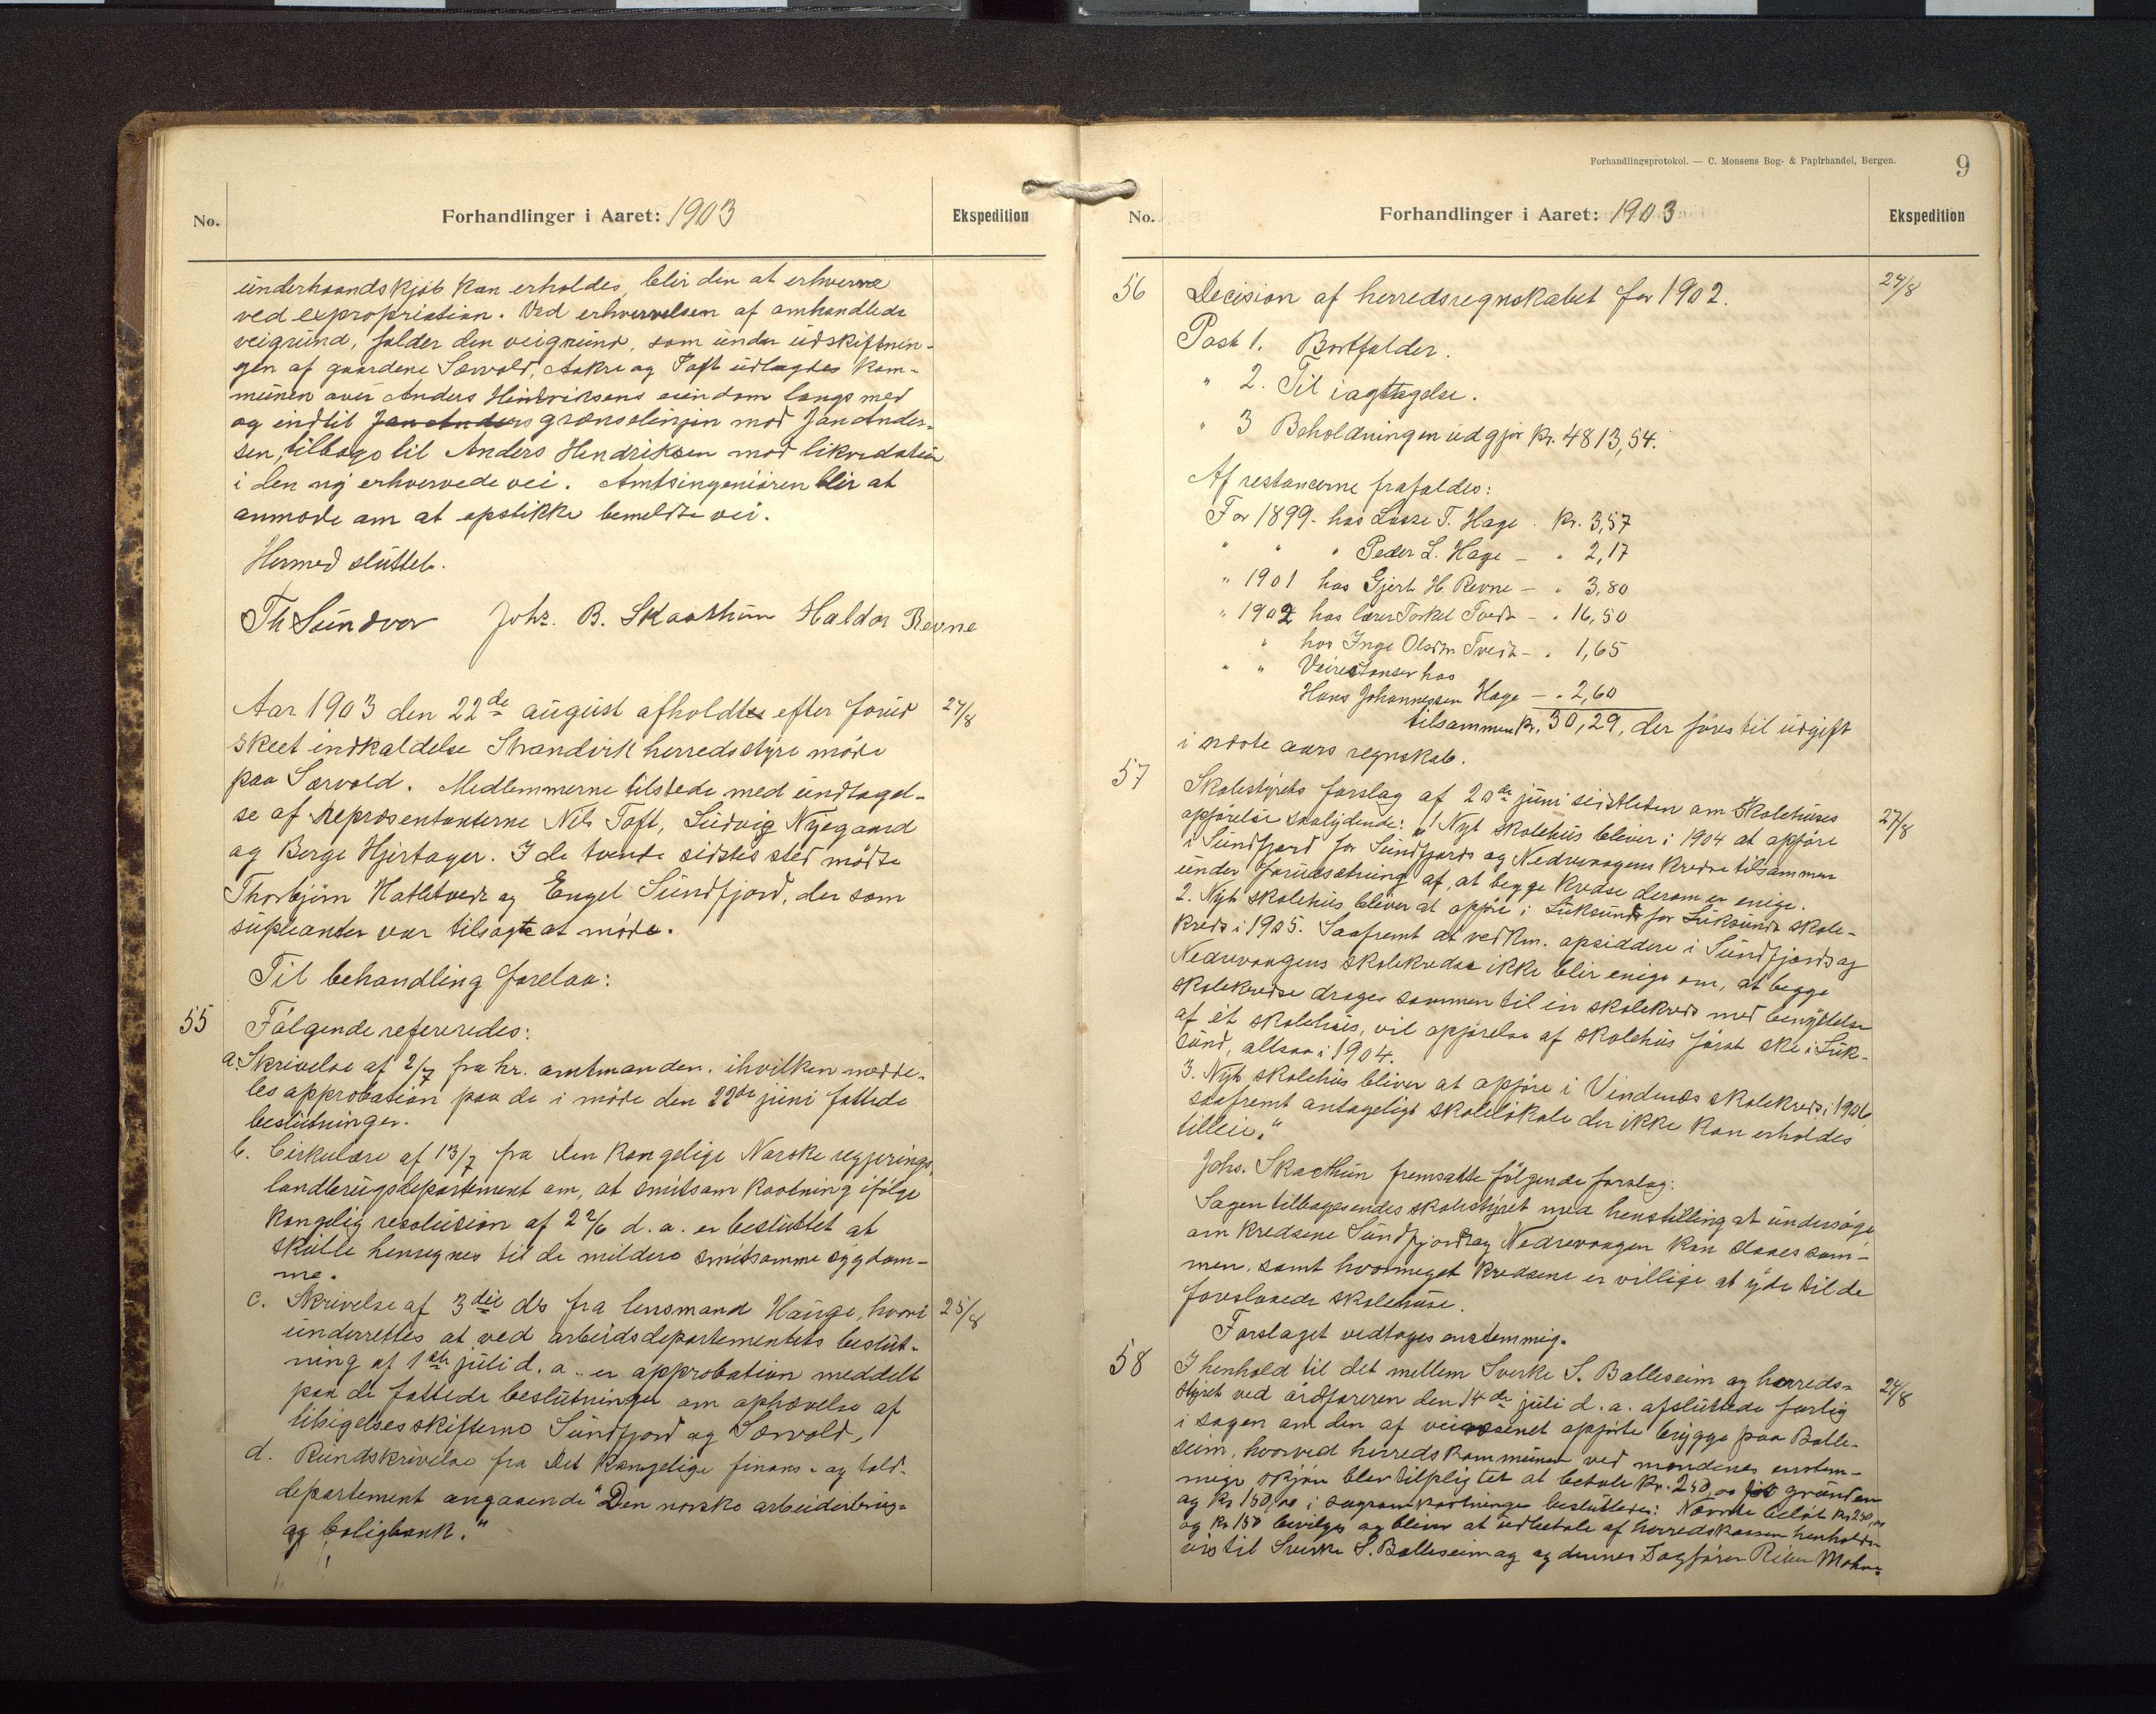 No.
Forhandlinger i Aaret: 1903
Ekspedition
underhaandskjøb kan erholdes, blir den at erhverve
ved expropriation. Ved erhvervelsen af omhandlede
veigrund, falder den veigrund, som under udskiftnin-
gen af gaardene Særvold, Aakre og Toft udlagdes kom-
munen over Anders Hendriksens eiendom langs med
og indtil Jan Anders grænselinjen mod Jan Ander-
sen, tilbage til Anders Hendriksen mod likvidation
i den ny erhvervede vei. Amtsingeniøren blir at
anmode om at opstikke bemeldte vei.
Hermed sluttet.
Th Sundvor Johs. B. Skaathun Haldor Revne
Aar 1903 den 22de august afholdtes efter forud 27/8
skeet indkaldelse Strandvik herredsstyre møde
paa Særvold. Medlemmerne tilstede med undtagel-
se af repræsentanterne Nils Toft, Ludvig Nygaard
og Berge Hjertager. I de tvende sidstes sted mødte
Thorbjørn Hatletvedt og Engel Sundfjord, der som
supleanter var tilsagte at møde.
Til behandling forelaa:
55 Følgende refereredes:
a. Skrivelse af 2/7 fra hr. amtmanden, ihvilken medde-
les approbation paa de i møde den 22de juni fattede
beslutninger.
b. Cirkulære af 13/7 fra den kongelige Norske regjerings
landbrugsdepartement om, at smitsom kastning ifølge
kongelig resolusion af 22/6 d. a. er besluttet at
skulle henregnes til de mildere smitsomme sygdom-
me.
c. Skrivelse af 3die ds fra lensmand Hauge, hvori 25/8
underrettes at ved arbeidsdepartementets beslut-
ning af 1ste juli d. a. er approbation meddelt
paa de fattede beslutninger om ophævelse af
libigelsesskifterne Sundfjord og Særvold,
d. Rundskrivelse fra Det kongelige finans- og told-
departement angaaende "Den norske arbeiderbrug-
og boligbank."
Forhandlingsprotokol. — C. Monsens Bog- & Papirhandel, Bergen.
9
No.
Forhandlinger i Aaret: 1903
Ekspedition
56 Decision af herredsregnskabet for 1902. 24/8
Post 1. Bortfalder.
" 2. Til iagttagelse.
" 3 Beholdningen udgjør kr. 4813,54.
Af restancerne frafaldes:
For 1899 - hos Lasse T. Hage . kr. 3,57
" " " Peder L. Hage — " 2,17
" 1901 hos Gjert H. Revne — " 3,80
" 1902 hos lærer Torkel Tvedt — " 16,50
" hos Inge Olsdtr Tvedt — " 1,65
" " Veirestanser hos
Hans Johannessen Hage — " 2,60
tilsammen kr. 30,29, der føres til udgift
i næste aars regnskab.
57 Skolestyrets forslag af 20de juni sidstleden om skolehuses 27/8
opførelse saalydende: "1 Nyt skolehus bliver i 1904 at opføre
i Sundfjord for Sundfjords og Nedrevaagens kredse tilsammen
under forudsætning af, at begge kredse derom er enige.
2. Nyt skolehus bliver at opføre i Luksund for Luksunds skole-
kreds i 1905. Saafremt at vedkm. opsiddere i Sundfjords og
Nedrevaagens skolekredse ikke blir enige om, at begge
skolekredse drages sammen til en skolekreds med benyttelse
af et skolehus, vil opførelse af skolehus først ske i Luk-
sund, altsaa i 1904.
3. Nyt skolehus bliver at opføre i Vindenæs skolekreds i 1906
saafremt antageligt skolelokale der ikke kan erholdes
tilleie."
Johs. Skaathun fremsatte følgende forslag:
Sagen tilbagesendes skolestyret med henstilling at undersøge
om kredsene Sundfjord og Nedrevaagen kan slaaes sam-
men, samt hvormeget kredsene er villige at yde til de
foreslaaede skolehuse.
Forslaget vedtoges enstemmig.
58 I henhold til det mellem Sverke S. Balleseim og herreds- 24/8
styret ved ordføreren den 14de juli d. a. afsluttede forlig
i sagen om den af veivæsenet opførte brygge paa Balle-
seim, hvorved herredskommunen ved mændenes enstem-
mige skjøn blev tilpligtet at betale kr. 250,00 for grunden
og kr 150,00 i sagsomkostninge besluttedes: Nævnte beløb kr. 250,00
og kr 150 bevilges og bliver at udbetale af herredskassen henholds-
vis til Sverke S. Balleseim og dennes sagfører Riber Mohn.